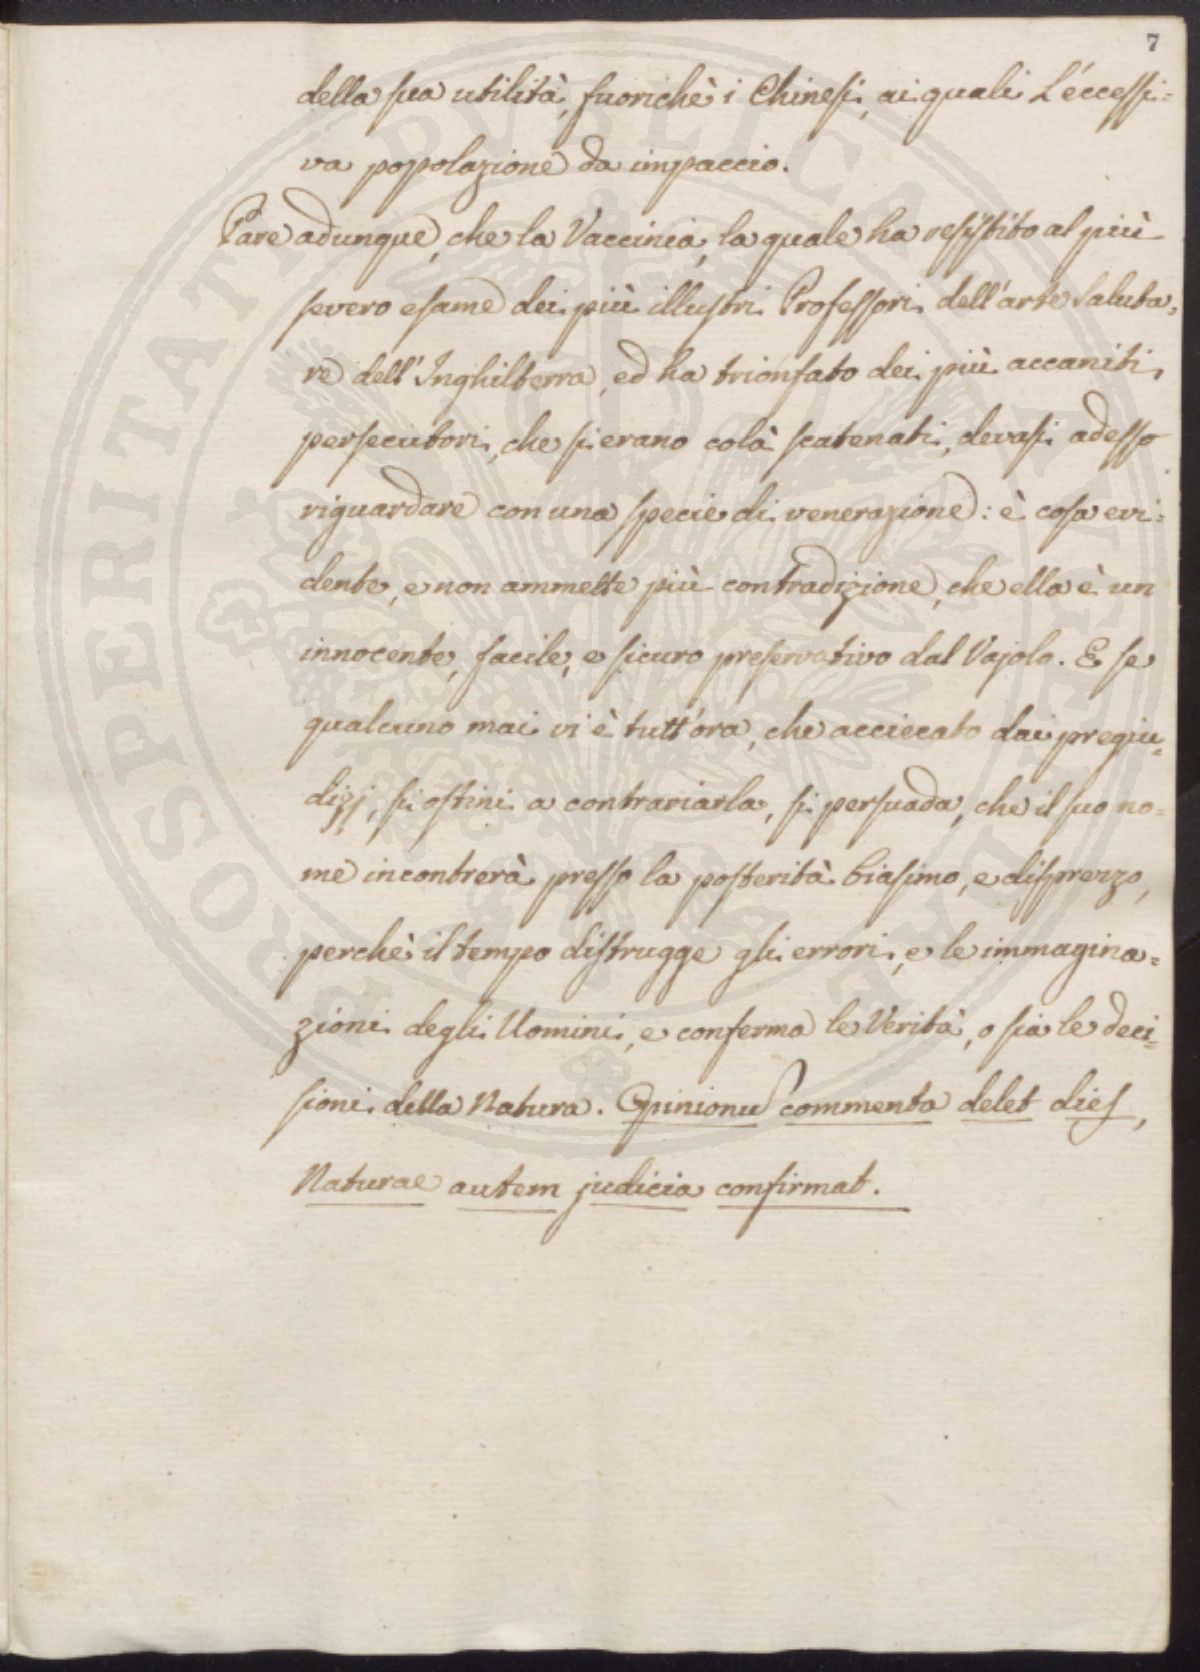 7
della sua utilità, fuorichè i Chinesi, ai quali L'eccessi=
va poppolazione da impaccio.
Pare adunque, che la Vaccinia, la quale ha resistito al più
severo esame dei più illustri Professori dell'arte saluta=
re dell'Inghilterra, ed ha trionfato dei più accaniti
persecutori, che si erano colà scatenati, devasi adesso
riguardare con una specie di venerazione: è cosa evi=
dente, e non ammette più contradizione, che ella è un
innocente, facile, e sicuro preservativo dal Vajolo. E se
qualcuno mai vi è tutt'ora, che acciecato dai pregiu=
dizj, si ostini a contrariarla, si persuada, che il suo no=
me incontrerà presso la posterità biasimo, e disprezzo,
perchè il tempo distrugge gli errori, e le immagina=
zioni degli Uomini, e conferma le Verità, o sia le deci=
sioni della Natura. Opinionu commenta delet dies,
Naturae autem judicia confirmat.
PROSPERITATI PVBLICAE